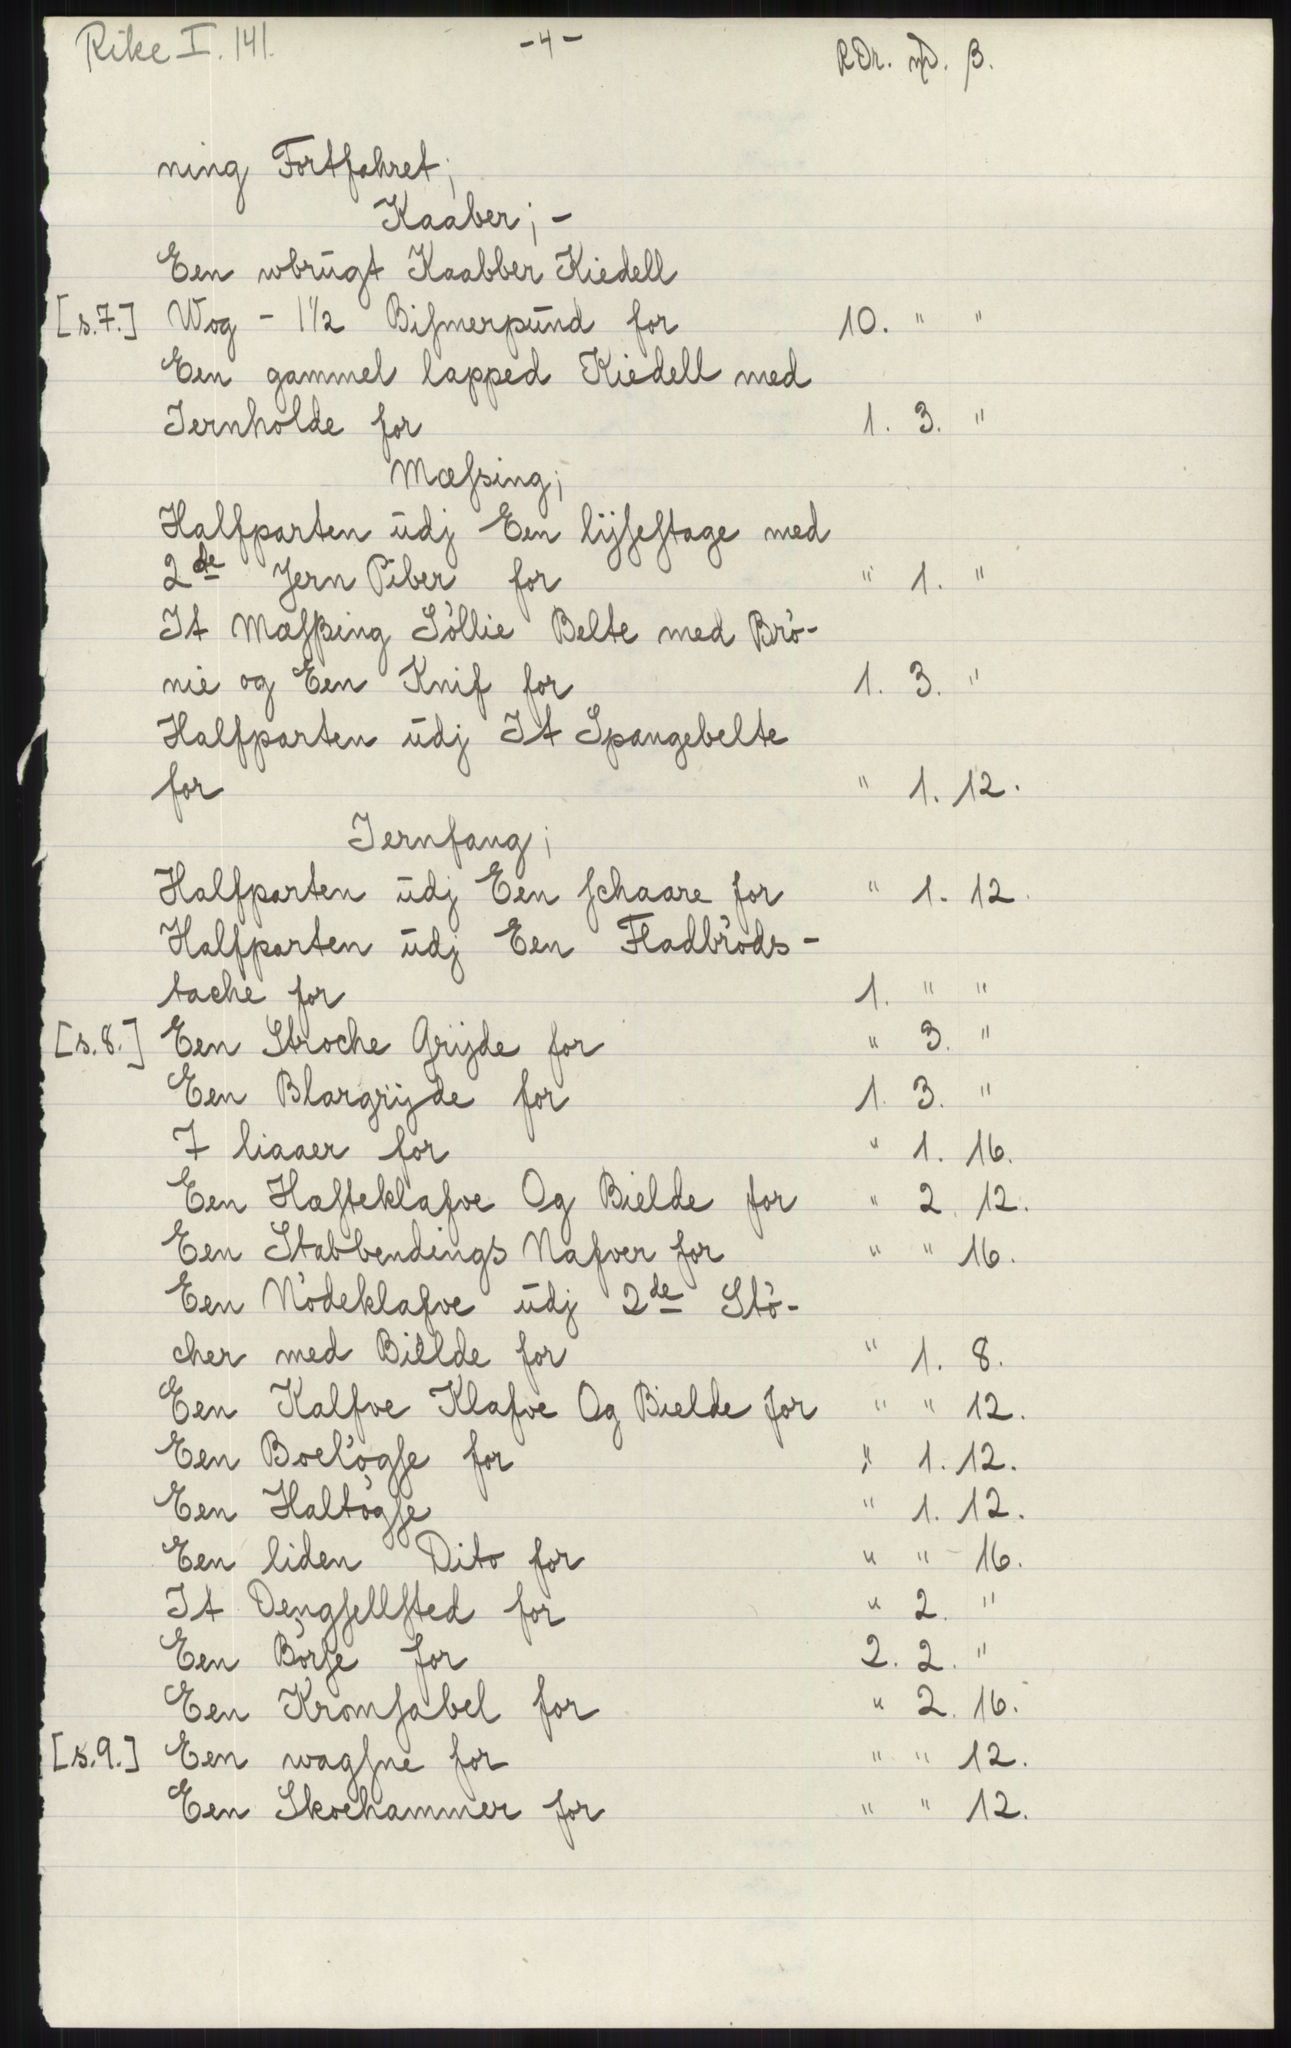 Rike I. 141.
- 4 -
RDr. mD. β.
ning Fortfahret;
Kaaber; -
Een wbrŭgt Kaabber Kiedell
[s.7.] Wog - 1 1/2 Bismerpŭnd for 10. " "
Een gammel lapped Kiedell med
Jernholde for 1. 3. "
Mæssing;
Halfparten ŭdj Een lÿsestage med
2de Jern Piber for " 1. "
It Mæsßing Söllie Belte med Brö-
nie og Een Knif for 1. 3. "
Halfparten ŭdj It Spangebelte
for " 1. 12.
Jernfang;
Halfparten ŭdj Een schaare for " 1. 12.
Halfparten ŭdj Een Fladbröds-
tache for 1. " "
[s.8.] Een Stroche Grÿde for " 3. "
Een Blargrÿde for 1. 3. "
7 liaaer for " 1. 16.
Een Hæsteklafve Og Bielde for " 2. 12.
Een Stabbendings Nafver for " " 16.
Een Nödeklafve ŭdj 2de Stö-
cher med Biëlde for " 1. 8.
Een Kalfve Klafve Og Bielde for " " 12.
Een Boelögse for " 1. 12.
Een Haltögse " 1. 12.
Een liden Dito for " " 16.
It Dengsellsted for " 2. "
Een Börse for 2. 2. "
Een Kromsabel for " 2. 16.
[s.9.] Een wagsne for " " 12.
Een Skoehammer for " " 12.